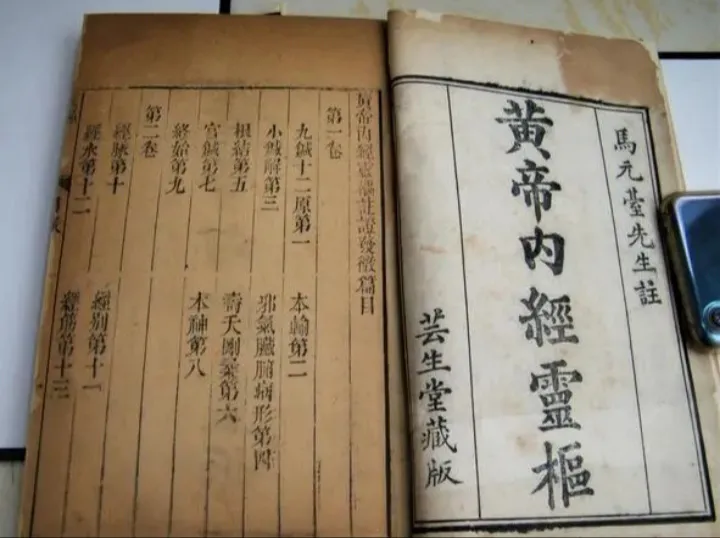 馬元臺先生註
黄帝内經靈樞
芸生堂藏版
黃帝内經靈樞註證發微篇目
第一卷
九鍼十二原第一
本輸第二
小鍼解第三
邪氣臟腑病形第四
根結第五
壽夭剛柔第六
官鍼第七
本神第八
終始第九
第二卷
經脉第十
經别第十一
經水第十二
經筋第十三